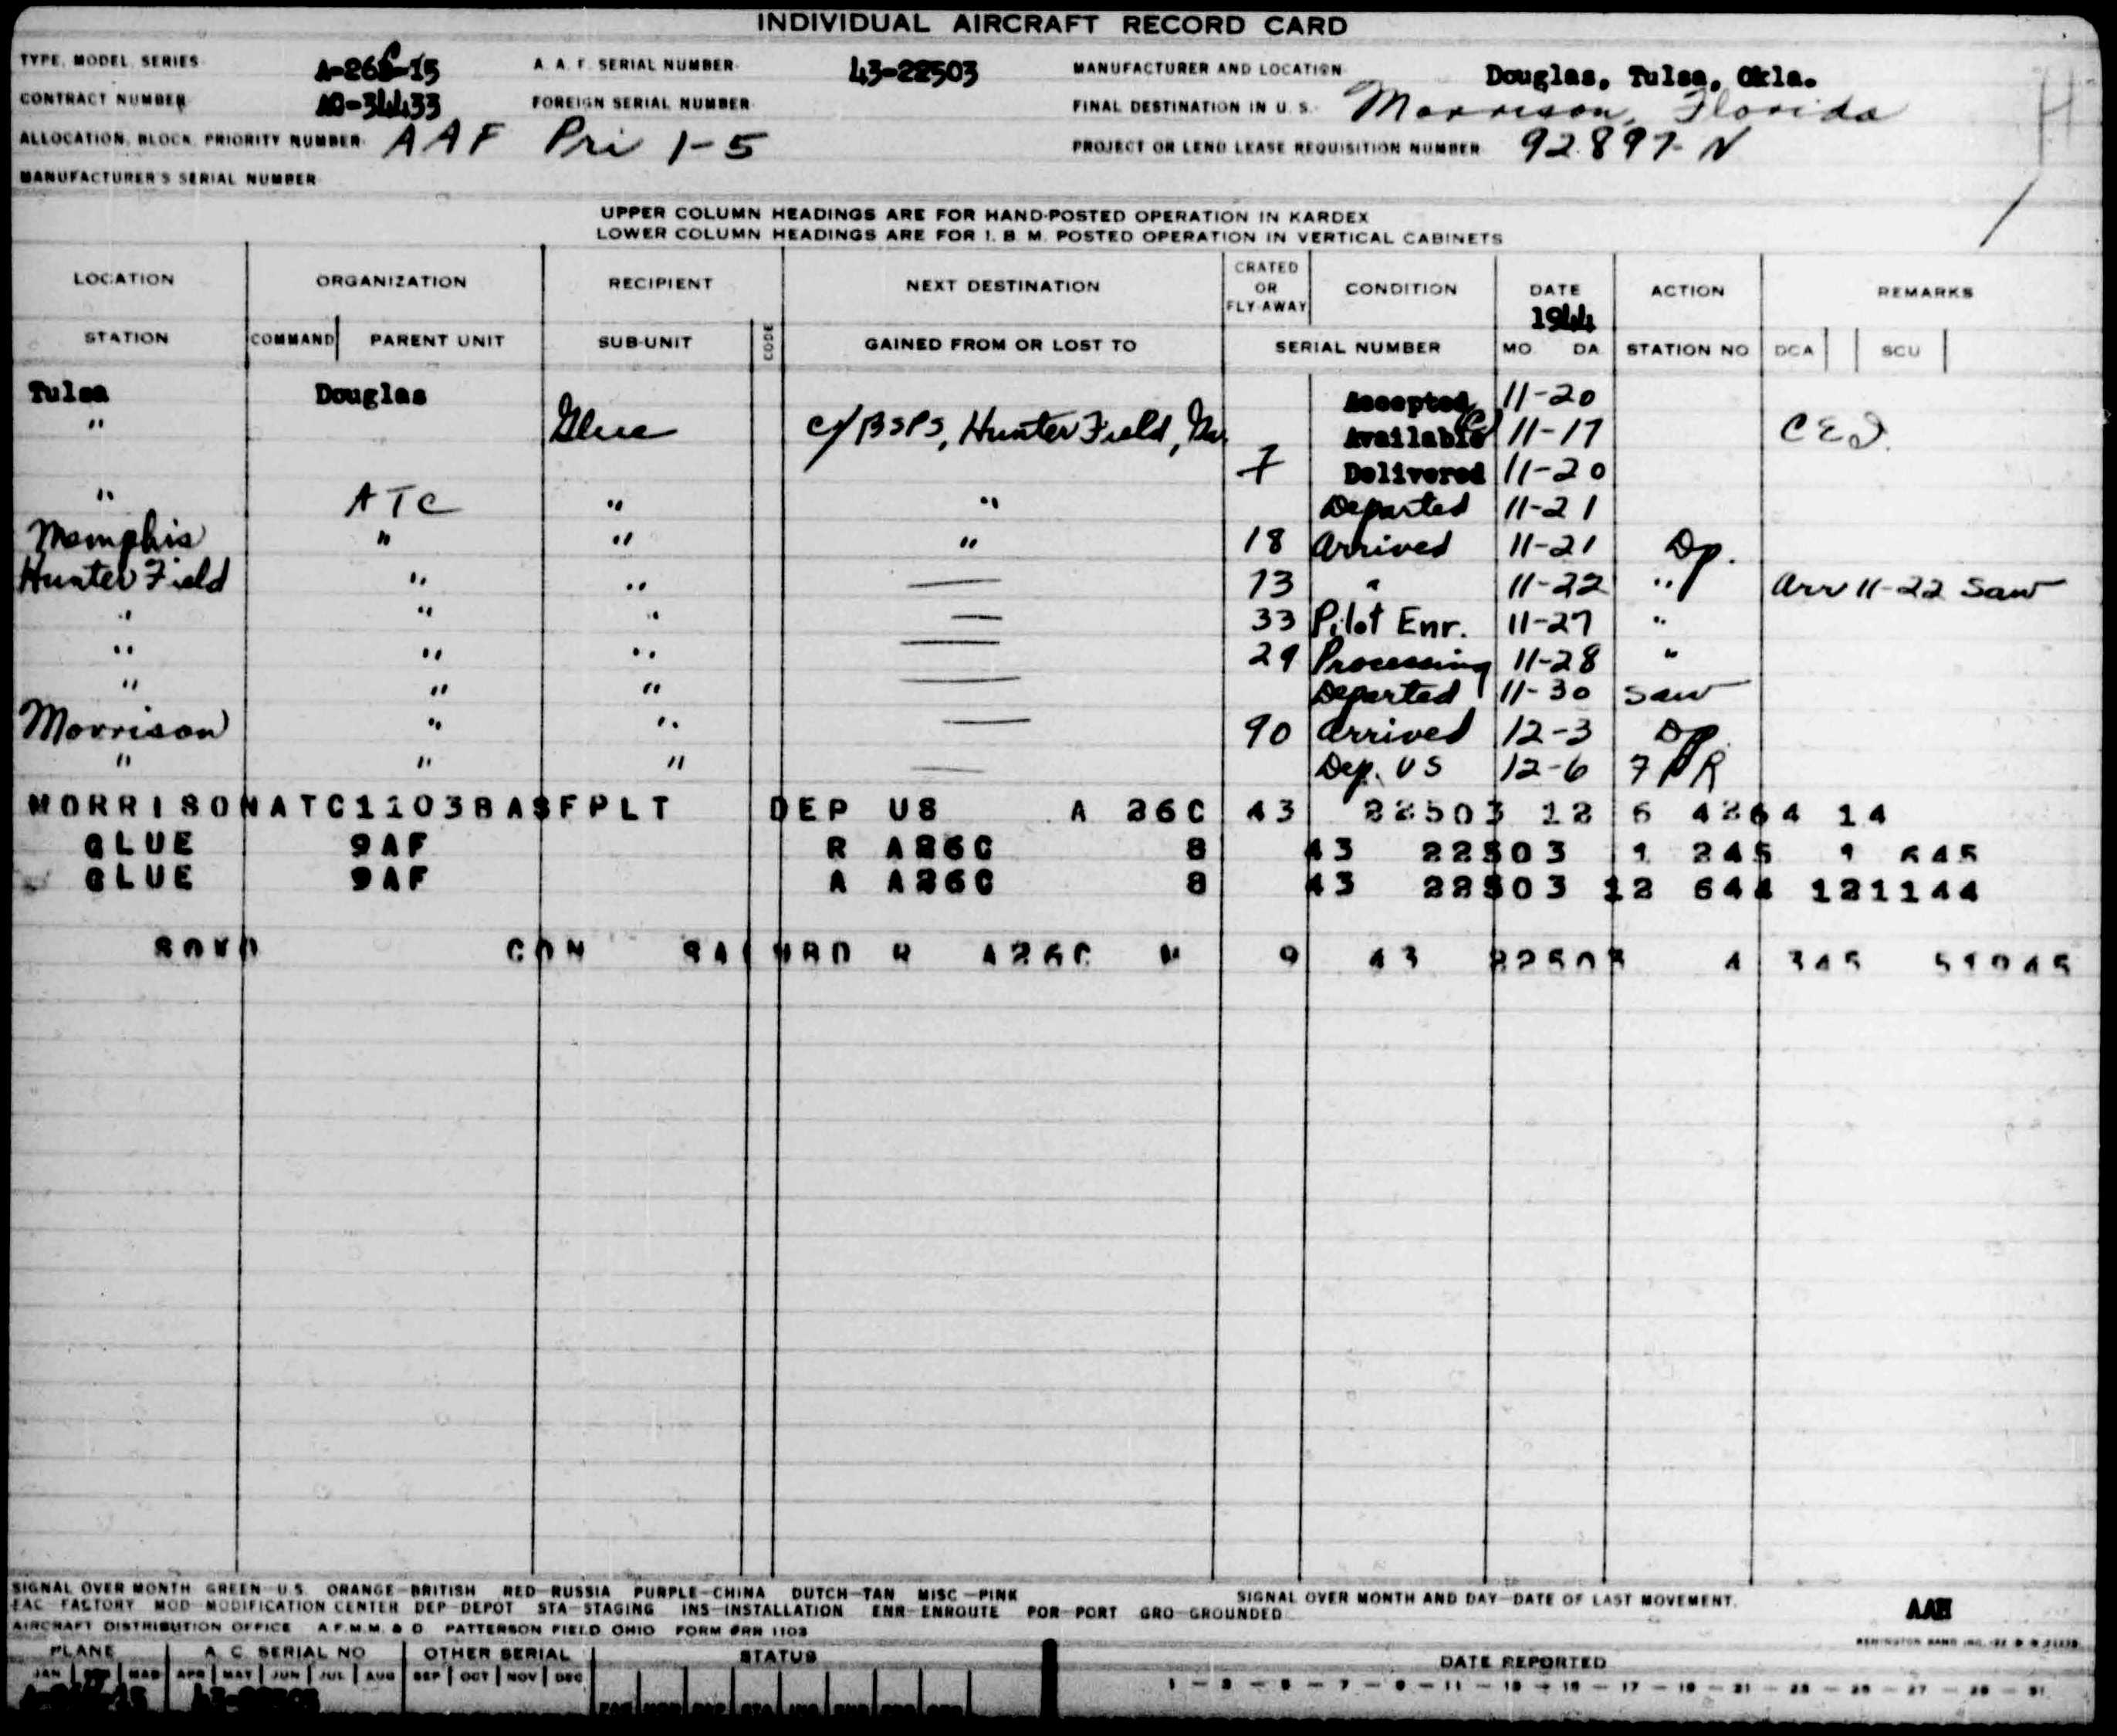 INDIVIDUAL AIRCRAFT RECORD CARD
TYPE, MODEL, SERIES A-26C-15 A. A. F. SERIAL NUMBER 43-22503 MANUFACTURER AND LOCATION Douglas, Tulsa, Okla.
CONTRACT NUMBER AC-34433 FOREIGN SERIAL NUMBER FINAL DESTINATION IN U. S. Morrison, Florida
ALLOCATION, BLOCK, PRIORITY NUMBER AAF Pri 1-5 PROJECT OR LEND LEASE REQUISITION NUMBER 92897-N
MANUFACTURER'S SERIAL NUMBER
UPPER COLUMN HEADINGS ARE FOR HAND-POSTED OPERATION IN KARDEX
LOWER COLUMN HEADINGS ARE FOR I. B. M. POSTED OPERATION IN VERTICAL CABINETS
LOCATION ORGANIZATION RECIPIENT NEXT DESTINATION CRATED OR FLY-AWAY CONDITION DATE 1944 ACTION REMARKS
STATION COMMAND PARENT UNIT SUB-UNIT CODE GAINED FROM OR LOST TO SERIAL NUMBER MO. DA. STATION NO DCA SCU
Tulsa Douglas Accepted 11-20
" Glue c/BSPS, Hunter Field, Ga. Available 11-17 CED.
7 Delivered 11-20
" ATC " " Departed 11-21
Memphis " " " 18 Arrived 11-21 Dp.
Hunter Field " " — 13 " 11-22 " Arr 11-22 Saw
" " " — 33 Pilot Enr. 11-27 "
" " " — 29 Processing 11-28 "
" " " — Departed 11-30 Saw
Morrison " " — 90 Arrived 12-3 Dp
" " " — Dep. US 12-6 7 PR
MORRISON ATC 1103BASFPLT DEP US A 26C 43 22503 12 6 4264 14
GLUE 9AF R A26C 8 43 22503 1 245 1 645
GLUE 9AF A A26C 8 43 22503 12 644 121144
CON R A26C M 9 43 22503 4 345 51945
SIGNAL OVER MONTH GREEN—U.S. ORANGE—BRITISH RED—RUSSIA PURPLE—CHINA DUTCH—TAN MISC—PINK SIGNAL OVER MONTH AND DAY—DATE OF LAST MOVEMENT.
FAC—FACTORY MOD—MODIFICATION CENTER DEP—DEPOT STA—STAGING INS—INSTALLATION ENR—ENROUTE POR—PORT GRO—GROUNDED AAH
AIRCRAFT DISTRIBUTION OFFICE A.F.M.M. & D PATTERSON FIELD OHIO FORM 1103
PLANE A. C. SERIAL NO OTHER SERIAL STATUS DATE REPORTED
JAN MAR APR MAY JUN JUL AUG SEP OCT NOV DEC 1 — 3 — 5 — 7 — 9 — 11 — 13 — 15 — 17 — 19 — 21 — 23 — 25 — 27 — 29 — 31